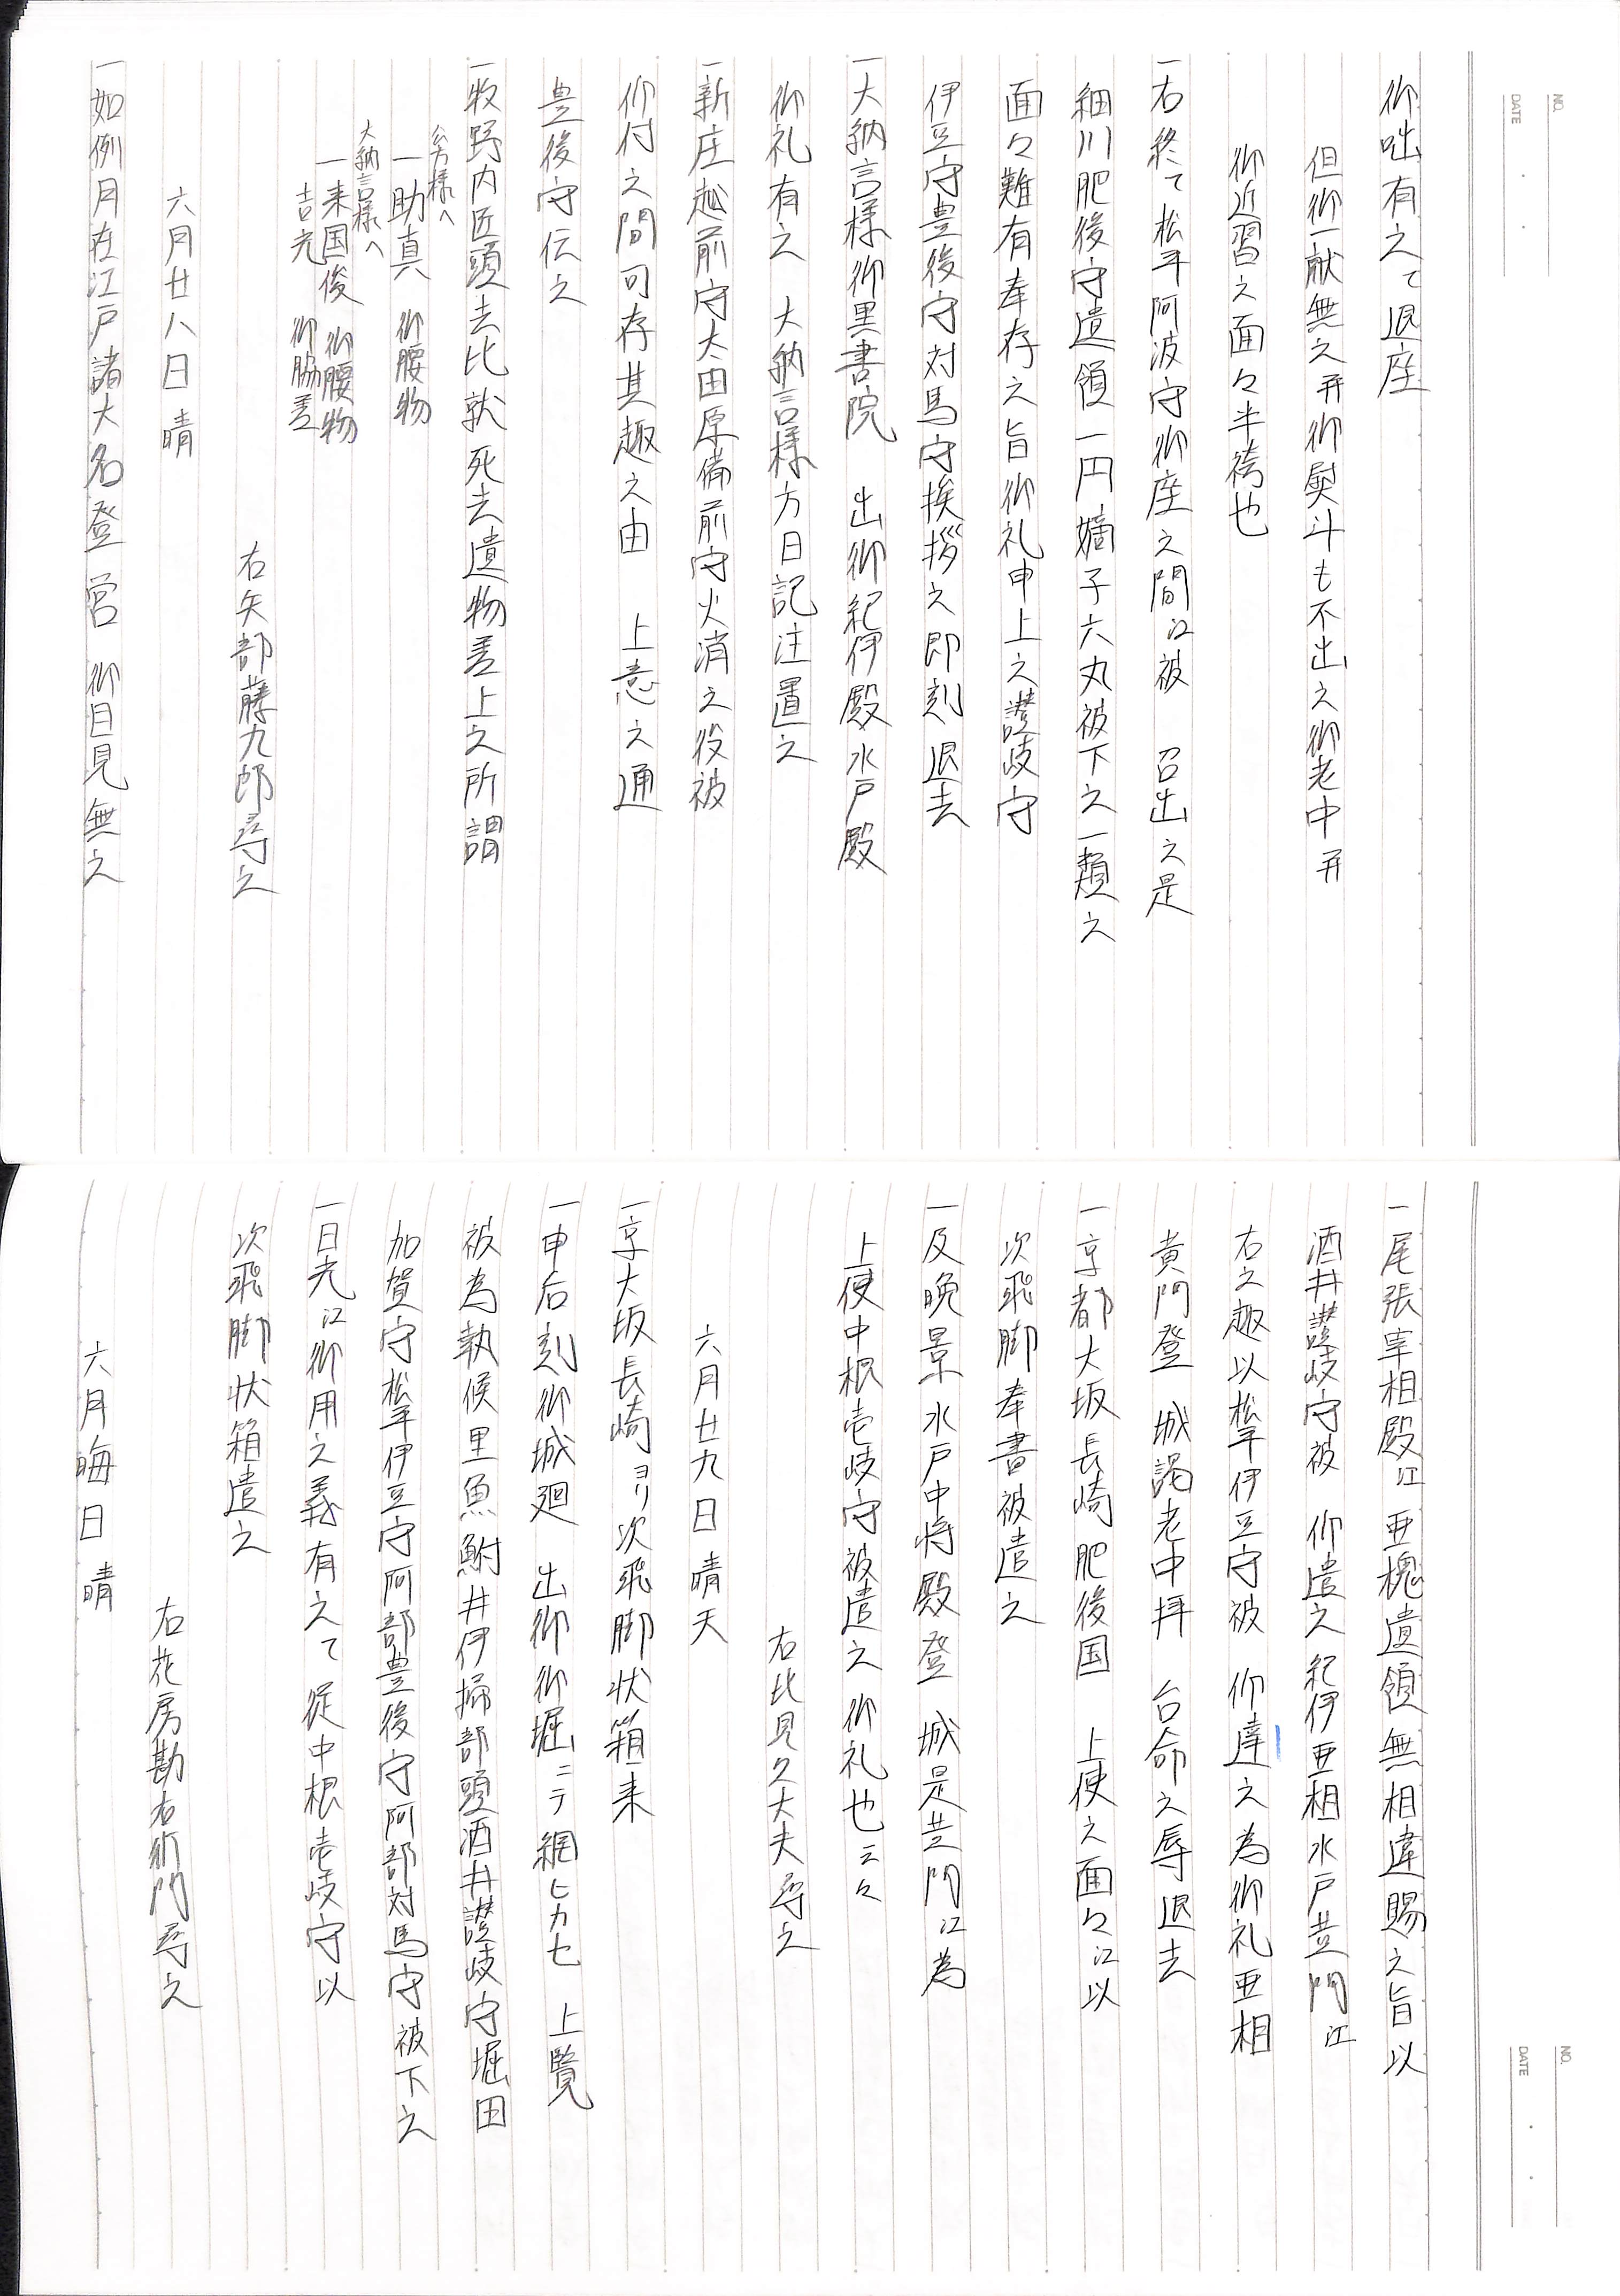 御咄有之て退座
但御一献無之并御熨斗も不出之御老中并
御近習之面々半袴也
一右終て松平阿波守御座之間江被　召出之是
細川肥後守遺領一円嫡子六丸被下之一類之
面々難有奉存之旨御礼申上之讃岐守
伊豆守豊後守対馬守挨拶之即刻退去
一大納言様御黒書院　出御紀伊殿水戸殿
御礼有之　大納言様方日記注置之
一新庄越前守大田原備前守火消之役被
仰付之間可存其趣之由　上意之通
豊後守伝之
一牧野内匠頭去比就死去遺物差上之所謂
公方様へ
一助真　御腰物
大納言様へ
一来国俊　御腰物
吉光　御脇差
右矢部藤九郎尋之
六月廿八日　晴
一如例月在江戸諸大名登　営　御目見無之
NO.
DATE
一尾張宰相殿江　亜槐遺領無相違賜之旨以
酒井讃岐守被　仰遣之紀伊亜相水戸黄門江
右之趣以松平伊豆守被　仰達之為御礼亜相
黄門登　城謁老中拝　台命之辱退去
一京都大坂長崎肥後国　上使之面々江以
次飛脚奉書被遣之
一及晩景水戸中将殿登　城是黄門江為
上使中根壱岐守被遣之御礼也云々
右比見久大夫尋之
六月廿九日　晴天
一京大坂長崎ヨリ次飛脚状箱来
一申后刻御城廻　出御御堀ニテ網ヒカセ　上覧
被為執候里魚鮒井伊掃部頭酒井讃岐守堀田
加賀守松平伊豆守阿部豊後守阿部対馬守被下之
一日光江御用之義有之て従中根壱岐守以
次飛脚状箱遣之
右花房勘右衛門尋之
六月晦日　晴
NO.
DATE